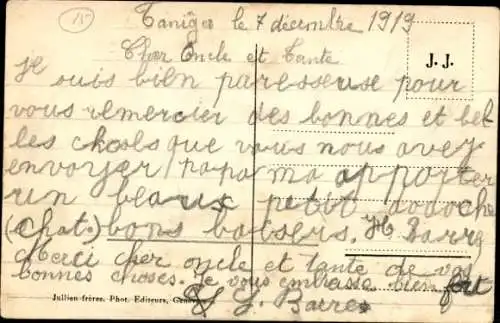 Taniger le 7 décembre 1919
15
J. J.
Cher Oncle et Tante
je suis bien paresseuse pour
vous remercier des bonnes et bel
les choses que vous nous avez
envoyer papa ma apporter
un beaux petit
(chat.) bons baisers. H Barre
Merci cher oncle et tante de vos
bonnes choses. Je vous embrasse bien fort
G. Barres
Jullien frères, Phot. Editeurs, Genève